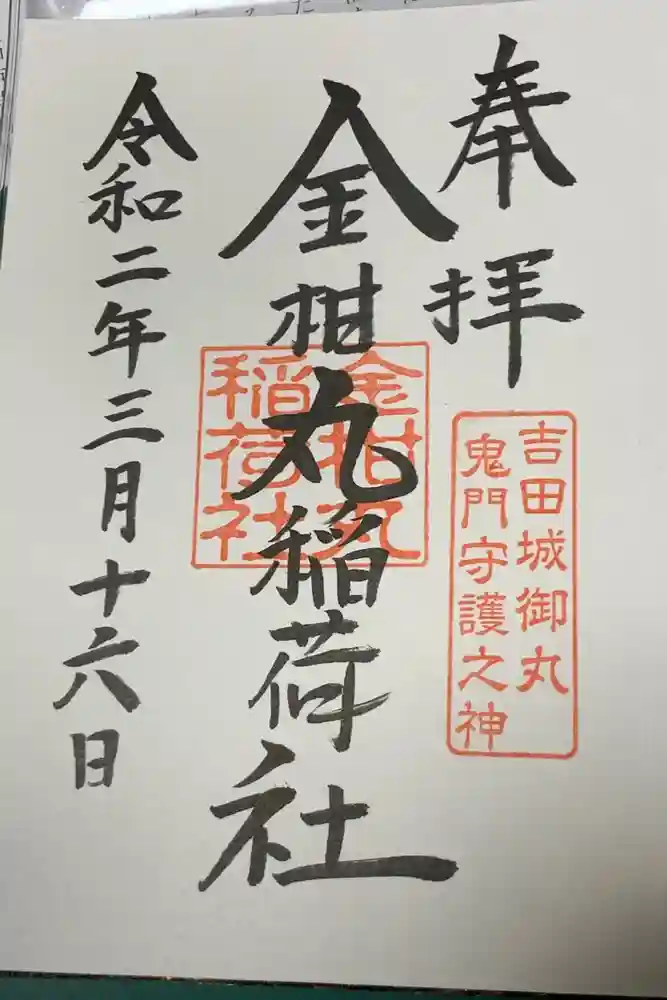 奉拝
吉田城御丸
鬼門守護之神
金柑丸稲荷社
金柑丸
稲荷社
令和二年三月十六日